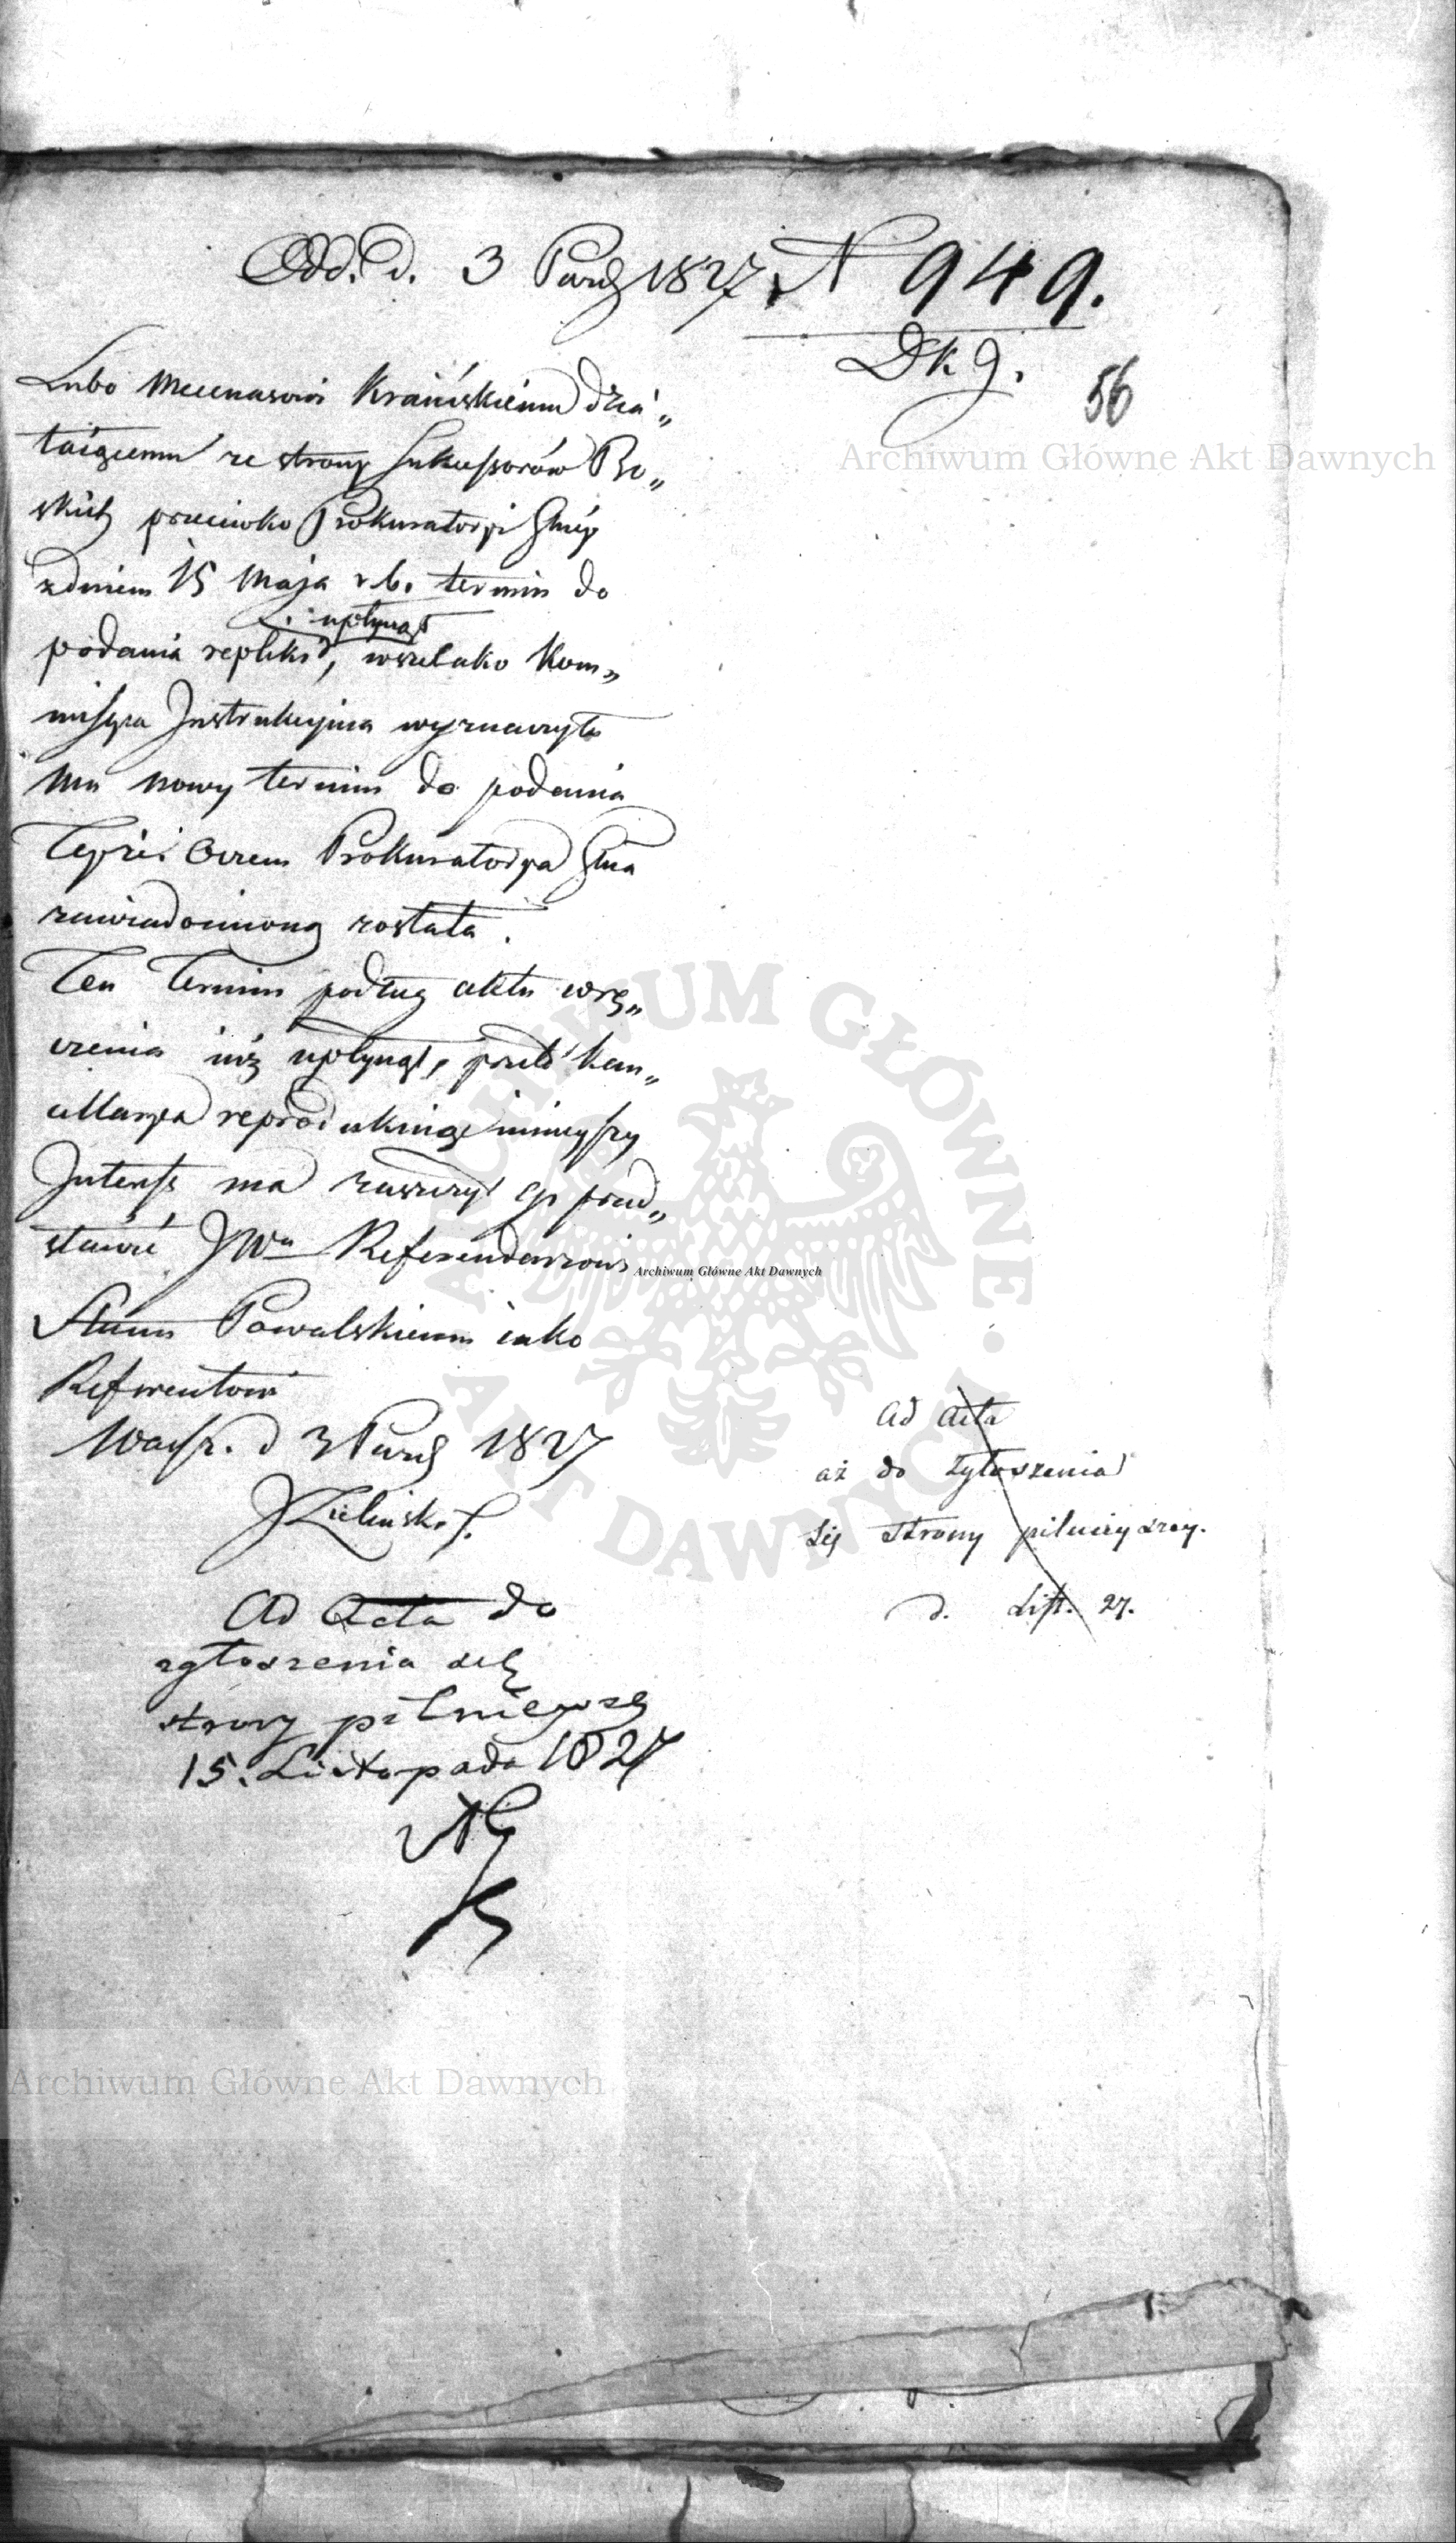 Odd. d. 3 Paźd 1827 N 949.
Dk 9.
56
Lubo Mecenasowi Kraińskiemu dzia„
łaiącemu ze strony Sukcessorów
skich przeciwko Prokuratoryi Głnéy
z dniem 15 Maja r. b. termin do
upłynął
podania repliki, wszelako Kom„
missya Instrukcyjna wyznaczyła
mu nowy termin do podania
teyże o czem Prokuratorya Głna
zawiadomioną została.
Ten Termin podług aktu wrę„
czenia iuż upłynął, przeto Kan„
cellarya reprodukuiąc ninieyszy
Interess ma zaszczyt go przed„
stawić JWu Referendarzowi
Stanu Powalskiemu iako
Referentowi
Warsz. d 3 Paźd 1827
JZieliński
Ad Acta do
zgłoszenia się
strony pilnieyszey
15. Listopada 1827
Ad Acta
aż do zgłoszenia
się strony pilnieyszey.
d. List. 27.
Archiwum Główne Akt Dawnych
ARCHIWUM GŁÓWNE AKT DAWNYCH
Archiwum Główne Akt Dawnych
Archiwum Główne Akt Dawnych